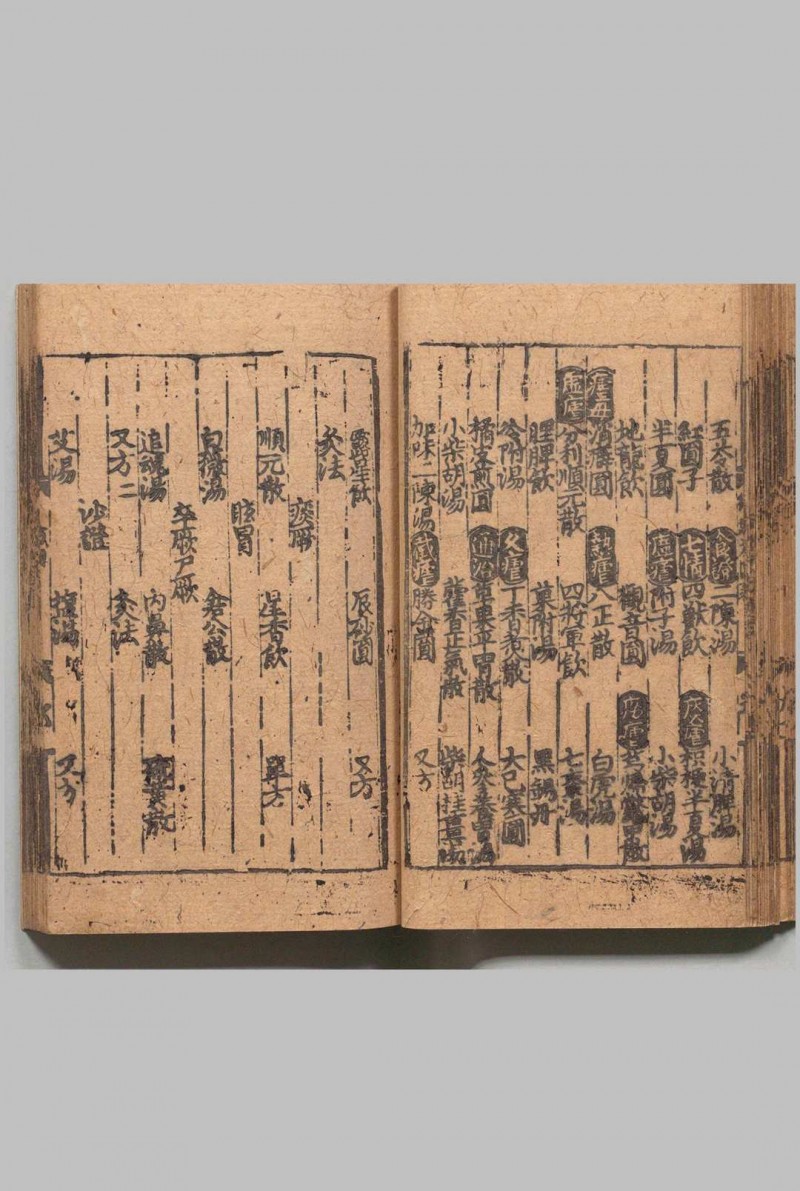 五苓散 食瘧 二陳湯 小清脾湯
紅圓子 七情 四獸飲 痰瘧 枳梗半夏湯
半夏圓 瘧 附子湯 小柴胡湯
地龍飲 觀音圓 瘧 散
瘧母 消癖圓 熱瘧 八正散 白虎湯
虛瘧 分利順元散 四將軍飲 七棗湯
脾飲 菓附湯 黑錫丹
芩附湯 久瘧 丁香煮散 大已寒圓
橘皮煎圓 通治 平胃散 人參養胃湯
小柴胡湯 藿香正氣散 柴胡桂薑湯
加味二陳湯 截瘧 勝金圓 又方
露星飲 辰砂圓 又方
灸法
痰厥
順元散 星香飲 單方
眩冒
白薇湯 倉公散
卒厥尸厥
追魂湯 內鼻散 硫黃散
又方二 灸法
沙證
艾湯 湯 又方